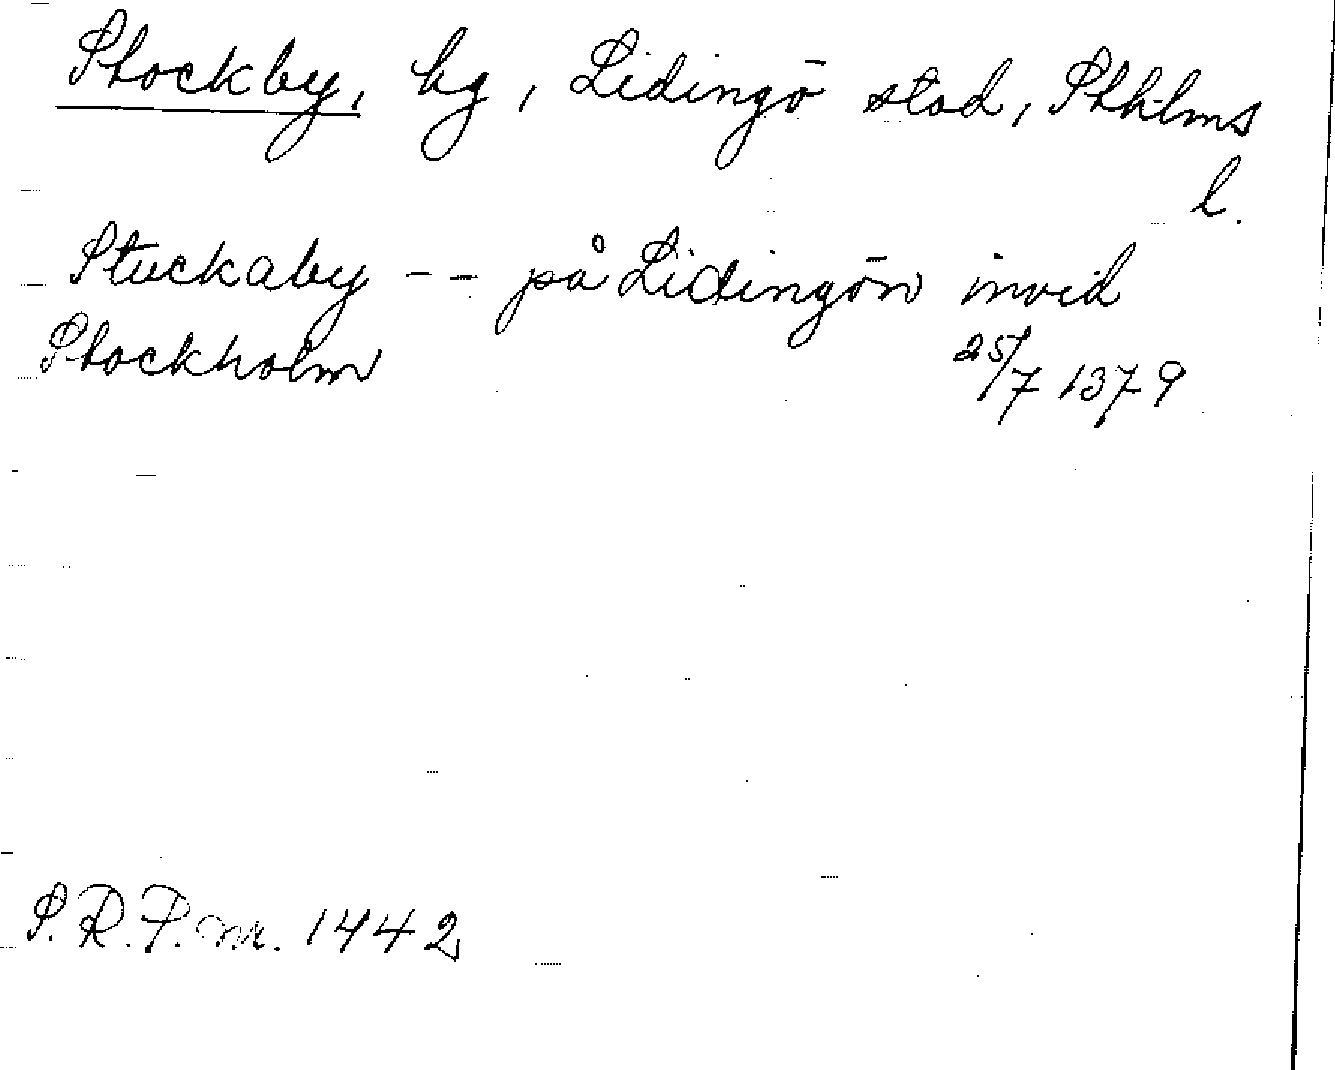 Stockby, by, Lidingö stad, Sthlms
l.
Stuckaby -- på Lidingön invid
Stockholm 25/7 1379
S.R.P. nr. 1442